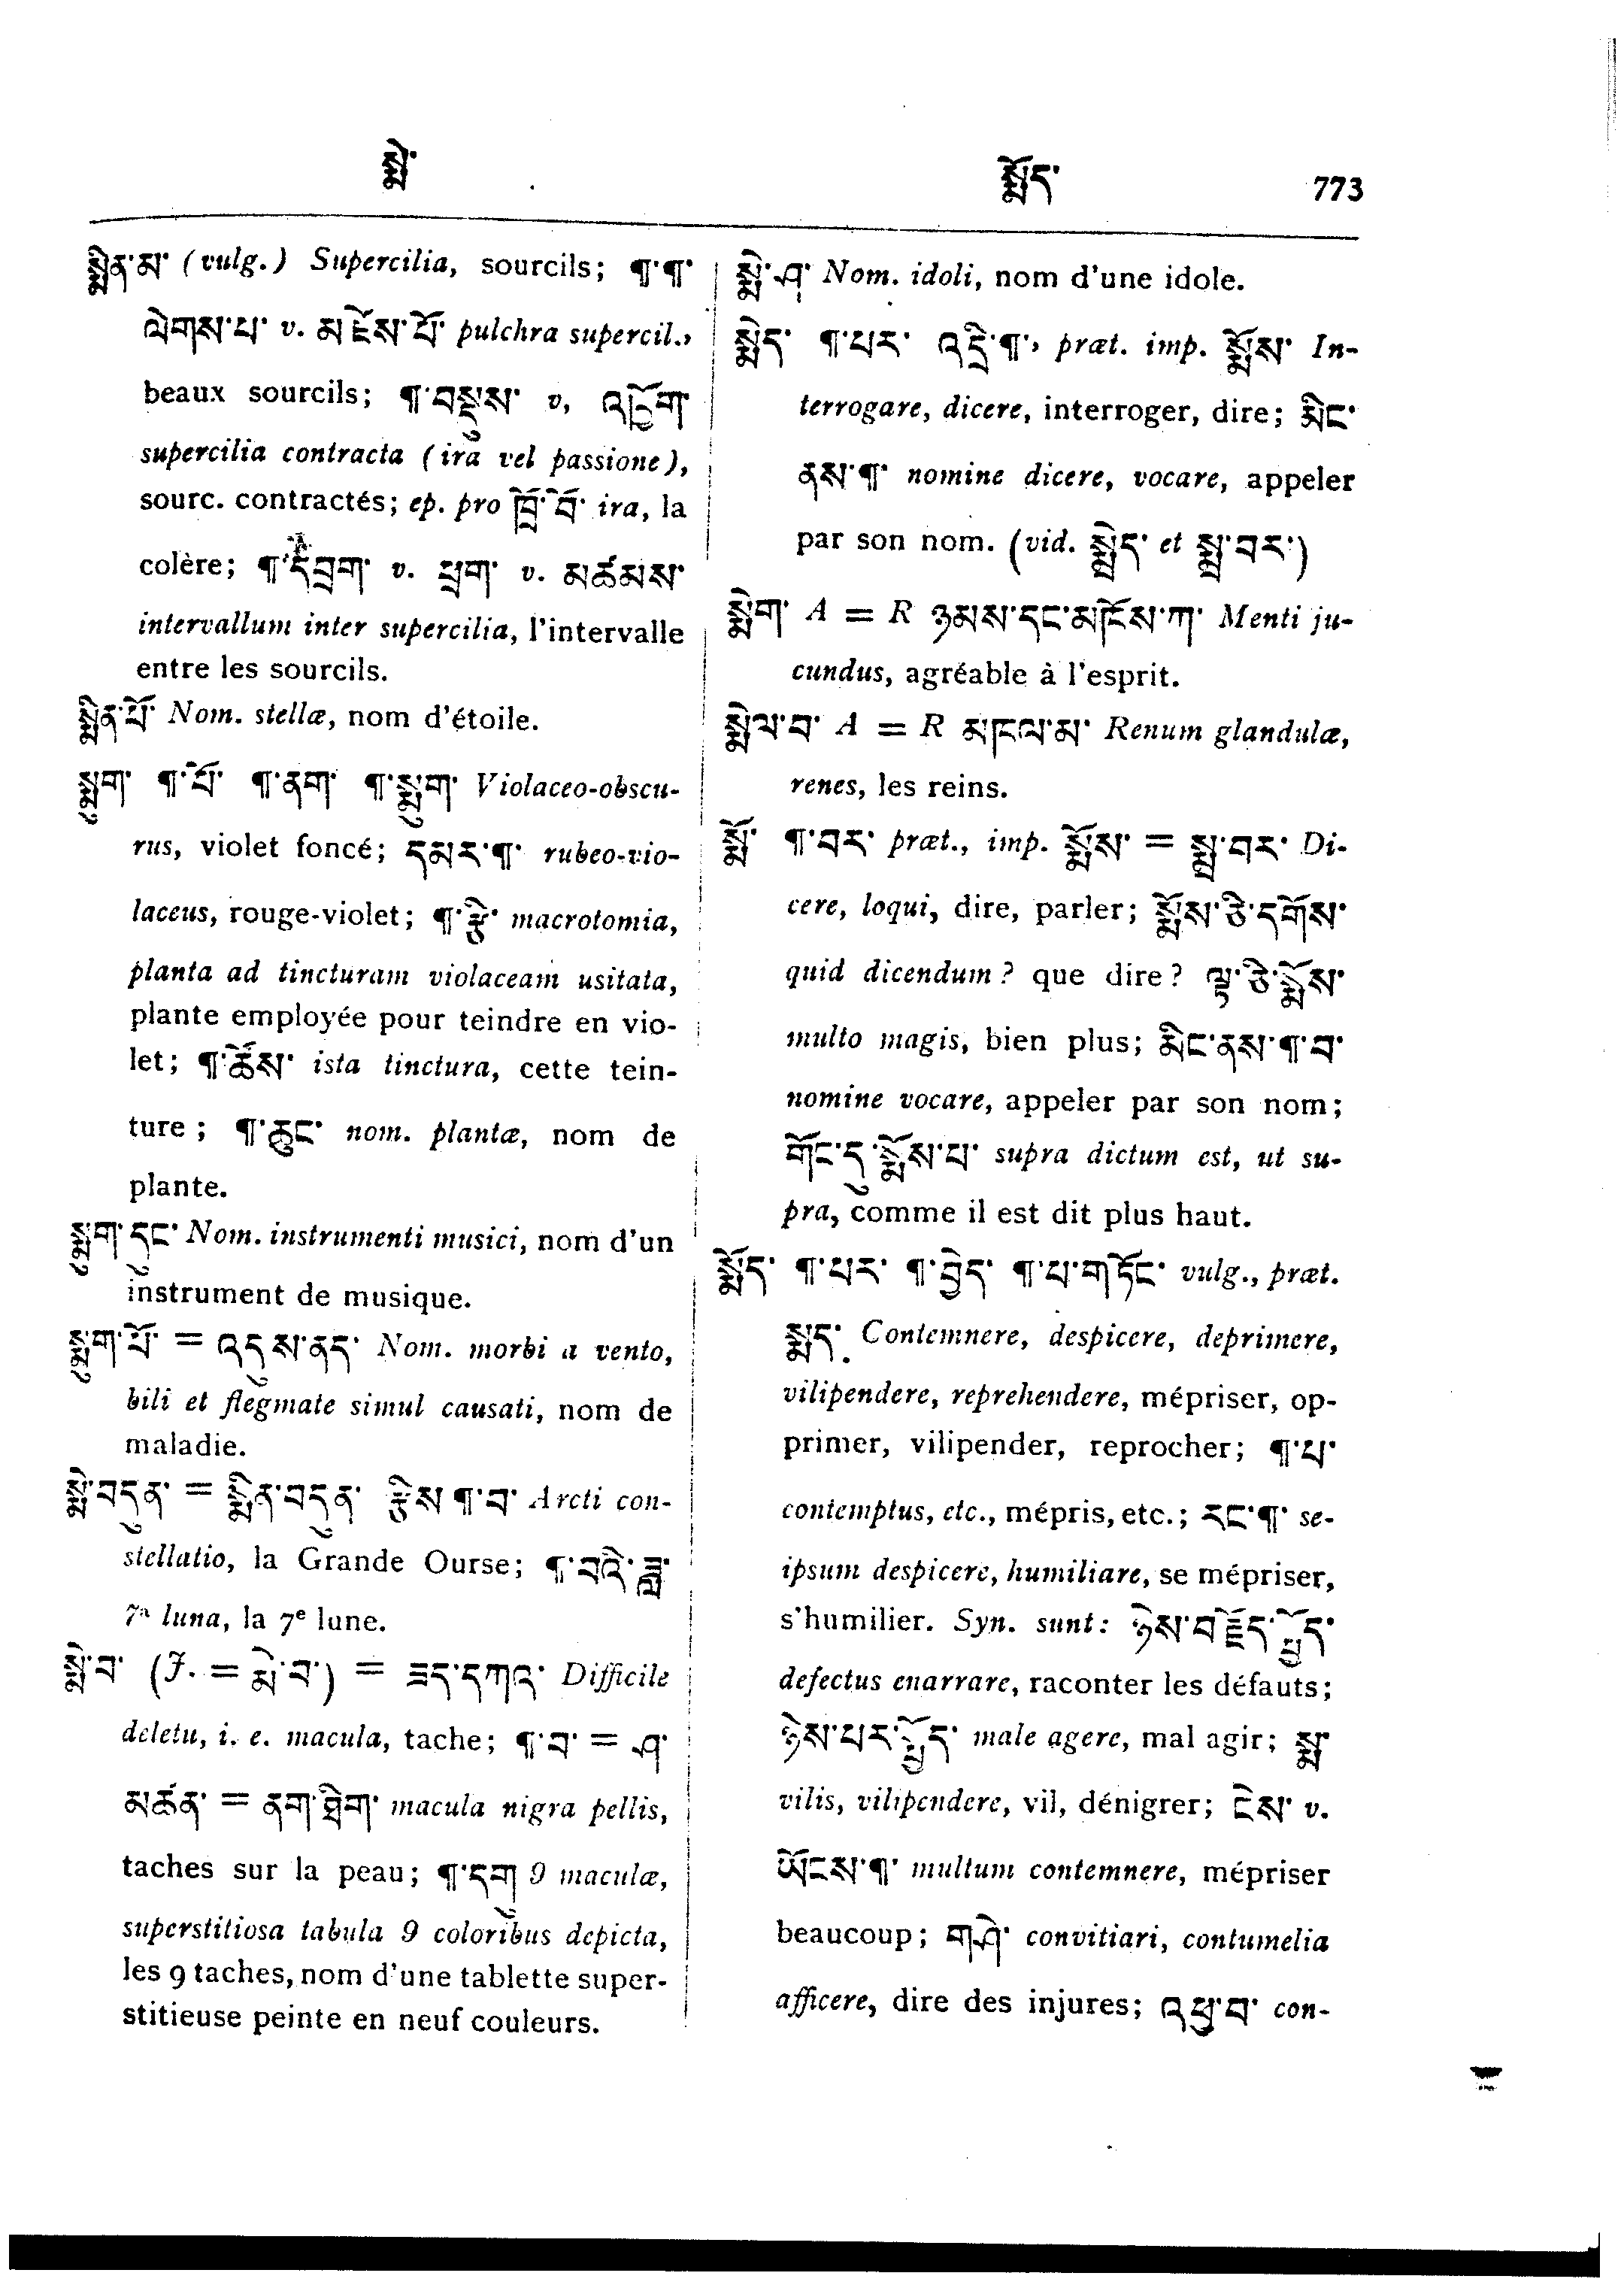 སྨེ་
སྨོད་ 773
སྨིན་མ་ (vulg.) Supercilia, sourcils; ¶་¶་
ལེགས་པ་ v. མཛེས་པོ་ pulchra supercil.,
beaux sourcils; ¶་བསྡུས་ v. འཁྲོག་
supercilia contracta (irâ vel passione),
sourc. contractés; ep. pro ཁྲོ་བོ་ ira, la
colère; ¶་ v. ཕྲག་ v. མཚམས་
intervallum inter supercilia, l'intervalle
entre les sourcils.
སྨིན་པོ་ Nom. stellæ, nom d'étoile.
སྨུག་ ¶་པོ་ ¶་ནག་ ¶་སྨུག་ Violaceo-obscu-
rus, violet foncé; དམར་¶་ rubeo-vio-
laceus, rouge-violet; ¶་རྩི་ macrotomia,
planta ad tincturam violaceam usitata,
plante employée pour teindre en vio-
let; ¶་ཚོས་ ista tinctura, cette tein-
ture; ¶་ཆུང་ nom. plantæ, nom de
plante.
སྨུག་དུང་ Nom. instrumenti musici, nom d'un
instrument de musique.
སྨུག་པོ་ = འདུས་ནད་ Nom. morbi a vento,
bili et flegmate simul causati, nom de
maladie.
སྨེ་བདུན་ = སྨིན་བདུན་ རྩིས ¶་བ་ Arcti con-
stellatio, la Grande Ourse; ¶་བའི་ཟླ་
7ª luna, la 7e lune.
སྨེ་བ་ (J. = མེ་བ་) = ཟད་དཀའ་ Difficile
deletu, i. e. macula, tache; ¶་བ་ = ཤ་
མཚན་ = ནག་ཐིག་ macula nigra pellis,
taches sur la peau; ¶་དགུ 9 maculæ,
superstitiosa tabula 9 coloribus depicta,
les 9 taches, nom d'une tablette super-
stitieuse peinte en neuf couleurs.
སྨེ་ཤ་ Nom. idoli, nom d'une idole.
སྨེད་ ¶་པར་ འདྲི་¶་, præt. imp. སྨོས་ In-
terrogare, dicere, interroger, dire; མིང་
ནས་¶་ nomine dicere, vocare, appeler
par son nom. (vid. སྨྲེད་ et སྨྲ་བར་)
སྨེག་ A = R ཉམས་དང་མཁོས་ཀ་ Menti ju-
cundus, agréable à l'esprit.
སྨེལ་བ་ A = R མཁལ་མ་ Renum glandulæ,
renes, les reins.
སྨོ་ ¶་བར་ præt., imp. སྨོས་ = སྨྲ་བར་ Di-
cere, loqui, dire, parler; སྨོས་ཅི་དགོས་
quid dicendum? que dire? ལྟ་ཅི་སྨོས་
multo magis, bien plus; མིང་ནས་¶་བ་
nomine vocare, appeler par son nom;
གོང་དུ་སྨོས་པ་ supra dictum est, ut su-
pra, comme il est dit plus haut.
སྨོད་ ¶་པར་ ¶་བྱེད་ ¶་པ་གཏོང་ vulg., præt.
སྨད་ Contemnere, despicere, deprimere,
vilipendere, reprehendere, mépriser, op-
primer, vilipender, reprocher; ¶་པ་
contemptus, etc., mépris, etc.; རང་¶་ se-
ipsum despicere, humiliare, se mépriser,
s'humilier. Syn. sunt: ཉེས་བརྗོད་སྤྱོད་
defectus enarrare, raconter les défauts;
ཉེས་པར་སྤྱོད་ male agere, mal agir; སྨ་
vilis, vilipendere, vil, dénigrer; ངེས་ v.
ཡོངས་¶་ multum contemnere, mépriser
beaucoup; གཤེ་ convitiari, contumelia
afficere, dire des injures; འཕྱ་བ་ con-